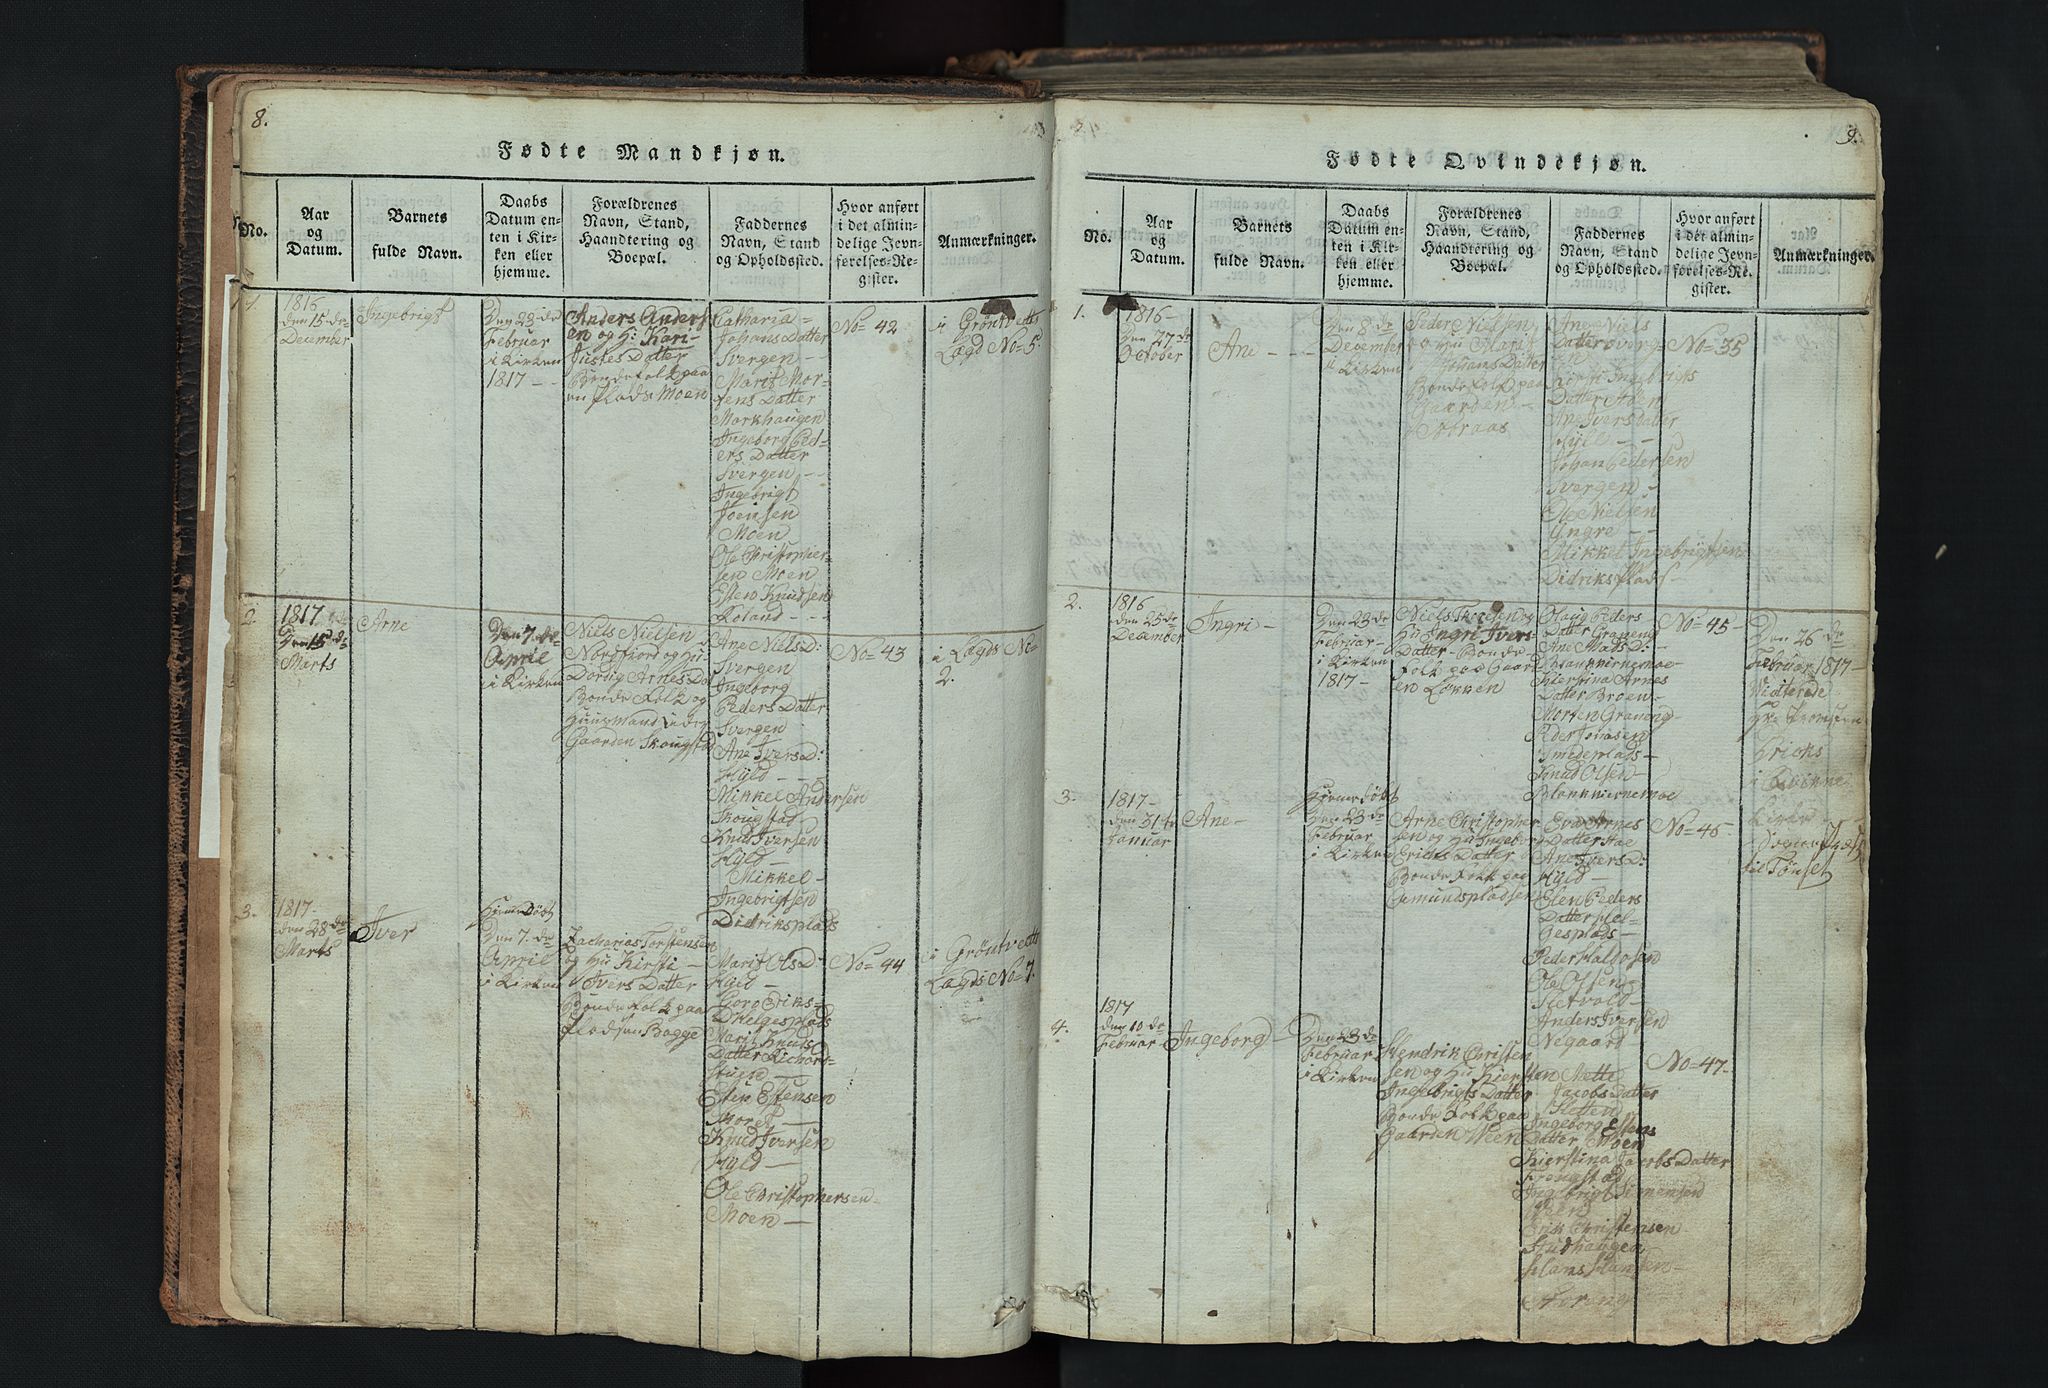 8.
Fødte Mandkjøn.
No.
Aar
og
Datum.
Barnets
fulde Navn.
Daabs
Datum en-
ten i Kir-
ken eller
hjemme.
Forældrenes
Navn, Stand,
Haandtering og
Boepæl.
Faddernes
Navn, Stand
og Opholdssted.
Hvor anført
i det almin-
delige Jevn-
førelses-Re-
gister.
Anmærkninger.
1.
1816
den 15-de
December
Ingebrigt
Den 23-de
Februar
i Kirken
1817 - -
Anders Anders
en og H: Kari-
Justes Datter
Bonde Folk paa
en Plads Moen
Catharia-
Johans Datter
Ivergen -
Marit Mor-
tens Datter
Morkhaugen
Ingeborg Ped-
ers Datter
Ivergen - -
Ingebrigt
Joensen
Moen
Ole Christopher-
sen Moen
Esten Knudsen
Roland - - -
No= 42
i Grøntvetts
Lægd No= 5.
2.
1817
Den 15 de
Marts
Arne
Den 7. de
April
i Kirken
Niels Nielsen
Nordfiord og Hu-
Dorsig Arnes Da
Bonde Folk og
Huusmand under
Gaarden Skougstad
Ane Niels D:
Ivergen
Ingeborg
Peders Datter
Ivergen
Ane Ivers D:
Hyld - - -
Mikkel Andersen
Skougstad
Knud Iversen
Hyld -
Mikkel -
Ingebrigtsen
Didriksplads
No= 43
i Lægds No=
2.
3.
1817-
den 28 de
Marts
Iver
Hiemedøbt
Den 7. de
April
i Kirken
Zacharias Torstensen
og Hu Kirsti -
Ivers Datter
Bonde Folk paa
Pladsen Bagge
Marit Ols D:
Hyld -
Goro Eriks-
D Helgesplads
Marit Knuds
Datter Richors-
stuen -
Esten Estensen
Moret -
Knud Iversen
Hyld -
Ole Christophersen
Moen -
No= 44
i Grøntvetts
Lægds No= 7.
9.
Fødte Qvindekjøn.
No.
Aar
og
Datum.
Barnets
fulde Navn.
Daabs
Datum en-
ten i Kir-
ken eller
hjemme.
Forældrenes
Navn, Stand,
Haandtering og
Boepæl.
Faddernes
Navn, Stand
og Opholdssted.
Hvor anført
i det almin-
delige Jevn-
førelses-Re-
gister.
Anmærkninger.
1.
1816-
Den 27 de
October
Ane - - -
Den 8-de
December
i Kirken
Peder Nielsen
og Hu Marit
Johans Datter
Bonde Folk paa
Gaarden -
Straas
Ane Niels
Datter Øverg-
en
Kirsti Ingebrigts
Datter Aden
Ane Ivers Datter
Hyld - -
Johan Pedersen
Ivergen -
Ole Nielsen
Yngre - -
Mikkel Ingebrigtsen
Didriks Plads-
No= 35
2.
1816
den 25 de
December
Ingri -
Den 23 de
Februar -
i Kirken
1817 -
Niels Tholsen og
Hu Ingri Ivers-
Datter - Bonde
Folk paa Gaard
en Løkken
Olaug Peders
Datter Graneng
Ane Mads D:
Blankkirnemoe
Kierstina Arnes
Datter Broen-
Morten Graneng
Peder Jonasen
Smedeplads-
Knud Olsen -
Blankkirnemoe
No= 45 -
Den 26 de
Februar 1817-
Kirke -
til Tønset
3.
1817-
den 31 te
Januar
Ane -
Hiemedøbt
Den 23 de
Februar
i Kirken
Arne Christopher
sen og Hu Ingeborg
Ericks Datter
Bonde Folk paa
Eva Arnes
Datter Moe
Ane Ivers D:
Hyld -
Elen Peders
Datter Hel-
gesplads -
Peder Haldosen
Ole Olsen -
Sletvold -
Anders Iversen
Negaart
No= 46
4.
1817
den 10 de
Februar
Ingeborg -
Den 23 de
Februar
i Kirken
Hendrik Christen
sen og Hu Kiersten
Ingebrigts Datter
Bonde Folk paa
Gaarden Weer
Mette
Jacobs Datter
Sletten
Ingeborg Estens
Datter Moen
Kierstina Jacobs Datter
Frengstad
Ingebrigt Simensen
Erik Christensen
Studhaugen
Hans Hansen -
No= 47 -